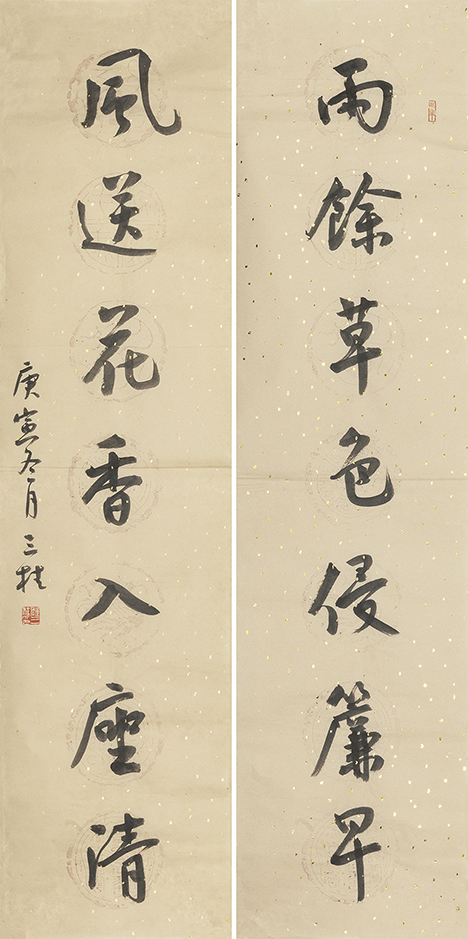 雨餘草色侵簾早
風送花香入座清
庚寅冬月三桂